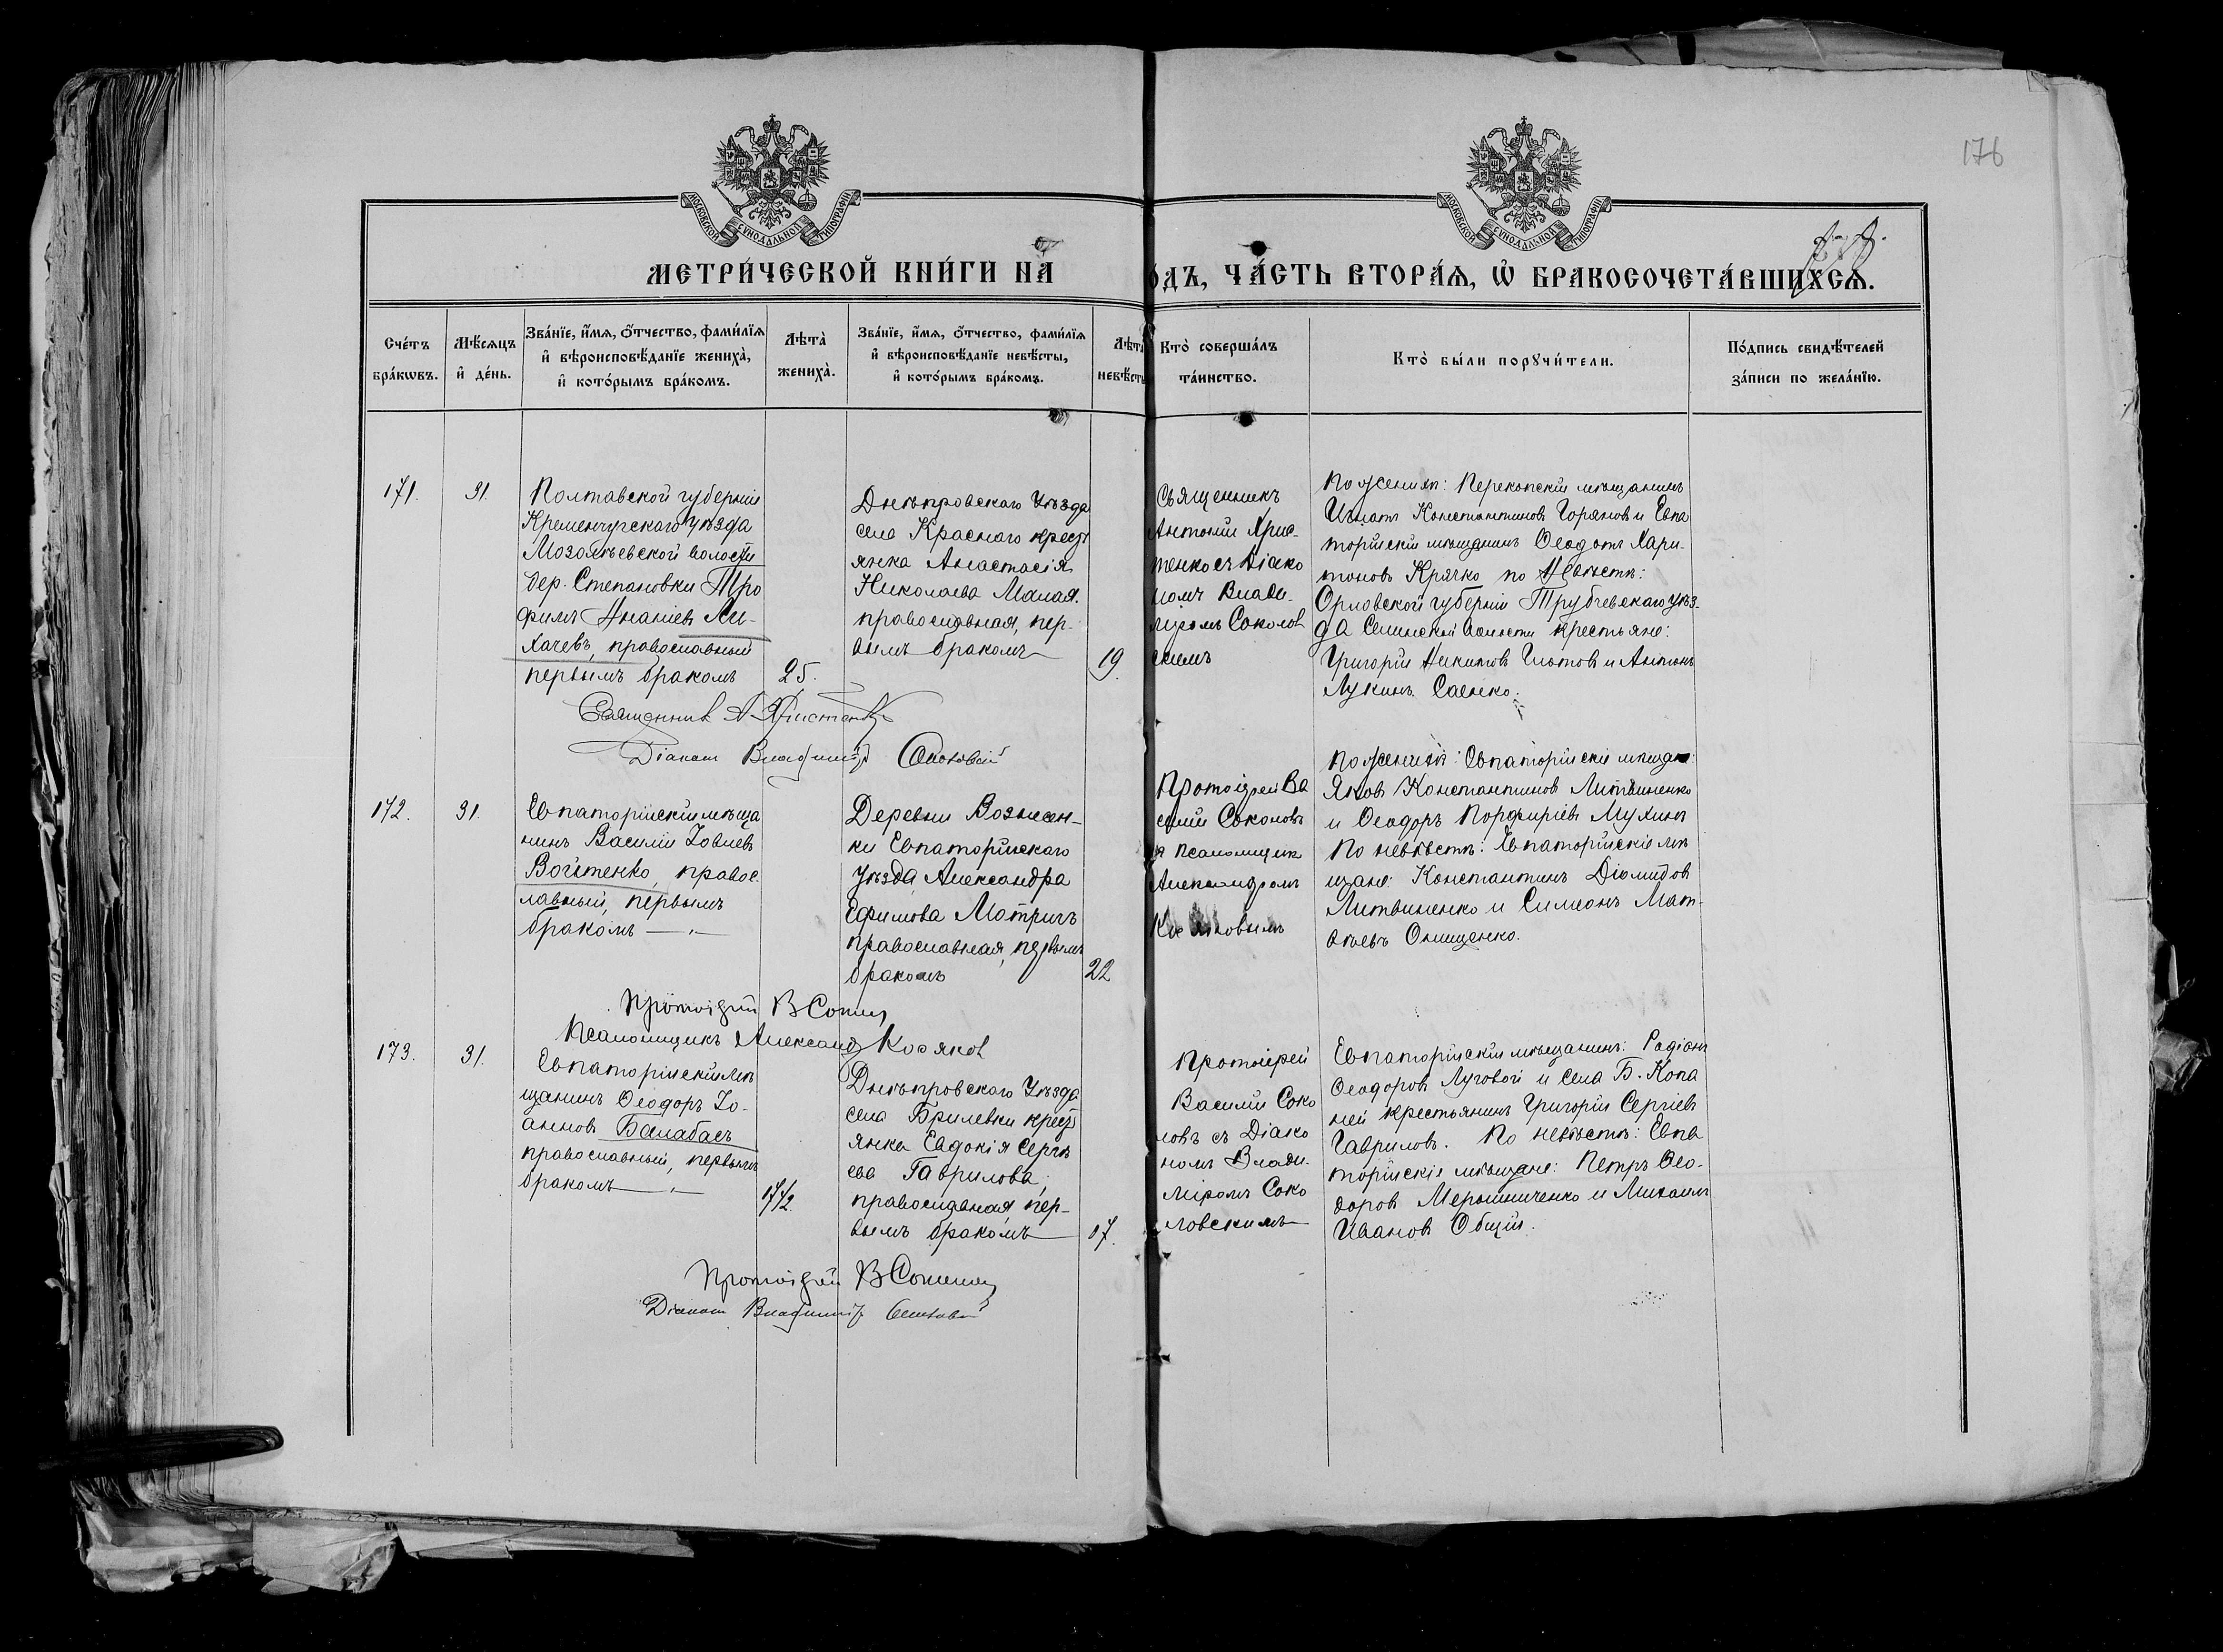 176
МОСКОВСКОЙ СѴНОДАЛЬНОЙ ТИПОГРАФІИ
МОСКОВСКОЙ СѴНОДАЛЬНОЙ ТИПОГРАФІИ
МЕТРИ́ЧЕСКОЙ КНИ́ГИ НА
О́ДЪ, ЧА́СТЬ ВТОРА́Ѧ, Ѽ БРАКОСОЧЕТА́ВШИХСѦ.
Сче́тъ бра́кωвъ.
Мѣ́сѧцъ и҆ де́нь.
Зва́нїе, и҆́мѧ, ѻ҆́тчество, фами́лїѧ
и҆ вѣроисповѣ́данїе жениха̀,
и҆ кото́рымъ бра́комъ.
Лѣта̀ жениха̀.
Зва́нїе, и҆́мѧ, ѻ҆́тчество, фами́лїѧ
и҆ вѣроисповѣ́данїе невѣ́сты,
и҆ кото́рымъ бра́комъ.
Лѣта̀ невѣ́сты
Кто̀ соверша́лъ та́инство.
Кто̀ бы́ли порꙋчи́тели.
По́дпись свидѣ́телей
за́писи по жела́нїю.
171.
31.
Полтавской губерніи
Кременчугскаго уѣзда
Мозолѣевской волости
дер. Степановки Тро
фимъ Ананіевъ Ли-
хачевъ, православный
первымъ бракомъ
25.
Днѣпровскаго Уѣзда
села Краснаго крест
янка Анастасія
Николаева Малая.
православная, пер-
вымъ бракомъ
19.
Священникъ
Антоній Хрис-
тенко съ Діако
номъ Влади-
міромъ Соколов
скимъ
По женихѣ: Перекопскій мѣщанинъ
Игнатъ Константиновъ Горяновъ и Евпа
торійскій мѣщанинъ Ѳеодотъ Хари-
тоновъ Крячко по Невѣстѣ:
Орловской губерніи Трубчевскаго уѣз-
да Селинской волости крестьяне:
Григорій Никитовъ Глотовъ и Антонъ
Лукинъ Саенко.
Священник А. Христенко
Діаконъ Владиміръ
172.
31.
Евпаторійскій мѣща
нинъ Василій Іовлевъ
Войтенко, правос
лавный, первымъ
бракомъ
Деревни Вознесен-
ки Евпаторійскаго
Уѣзда Александра
Ефимова Мотричъ
православная, первымъ
бракомъ
22
Протоіерей Ва
силій Соколовъ
и псаломщик
Александромъ
По женихѣ: Евпаторійскіе мѣщане:
Яковъ Константиновъ Литвиненко
и Ѳеодоръ Порфиріевъ Мухинъ
По невѣстѣ: Евпаторійскіе мѣ
щане: Константинъ Діомидовъ
Литвиненко и Симеонъ Мат-
вѣевъ Онищенко.
Протоіерей В Соколовъ
Псаломщикъ Александръ Косяковъ
173.
31.
Евпаторійскій мѣ
щанинъ Ѳеодоръ Іо-
анновъ Балабасъ
православный, первымъ
бракомъ
17 1/2
Днѣпровскаго Уѣзда
села Брилевки крест
янка Евдокія Сергѣ
ева Гаврилова,
православная пер-
вымъ бракомъ
17.
Протоіерей
Василій Соко
ловъ съ Діако
номъ Влади-
міромъ Соко
ловскимъ
Евпаторійскій мѣщанинъ: Родіонъ
Ѳеодоровъ Луговой и села Б. Копа
ней крестьянинъ Григорій Сергіевъ
Гавриловъ. По невѣстѣ: Евпа
торійскіе мѣщане: Петръ Ѳео-
доровъ Мерошниченко и Михаилъ
Ивановъ Общій.
Протоіерей В Соколовъ
Діаконъ Владиміръ